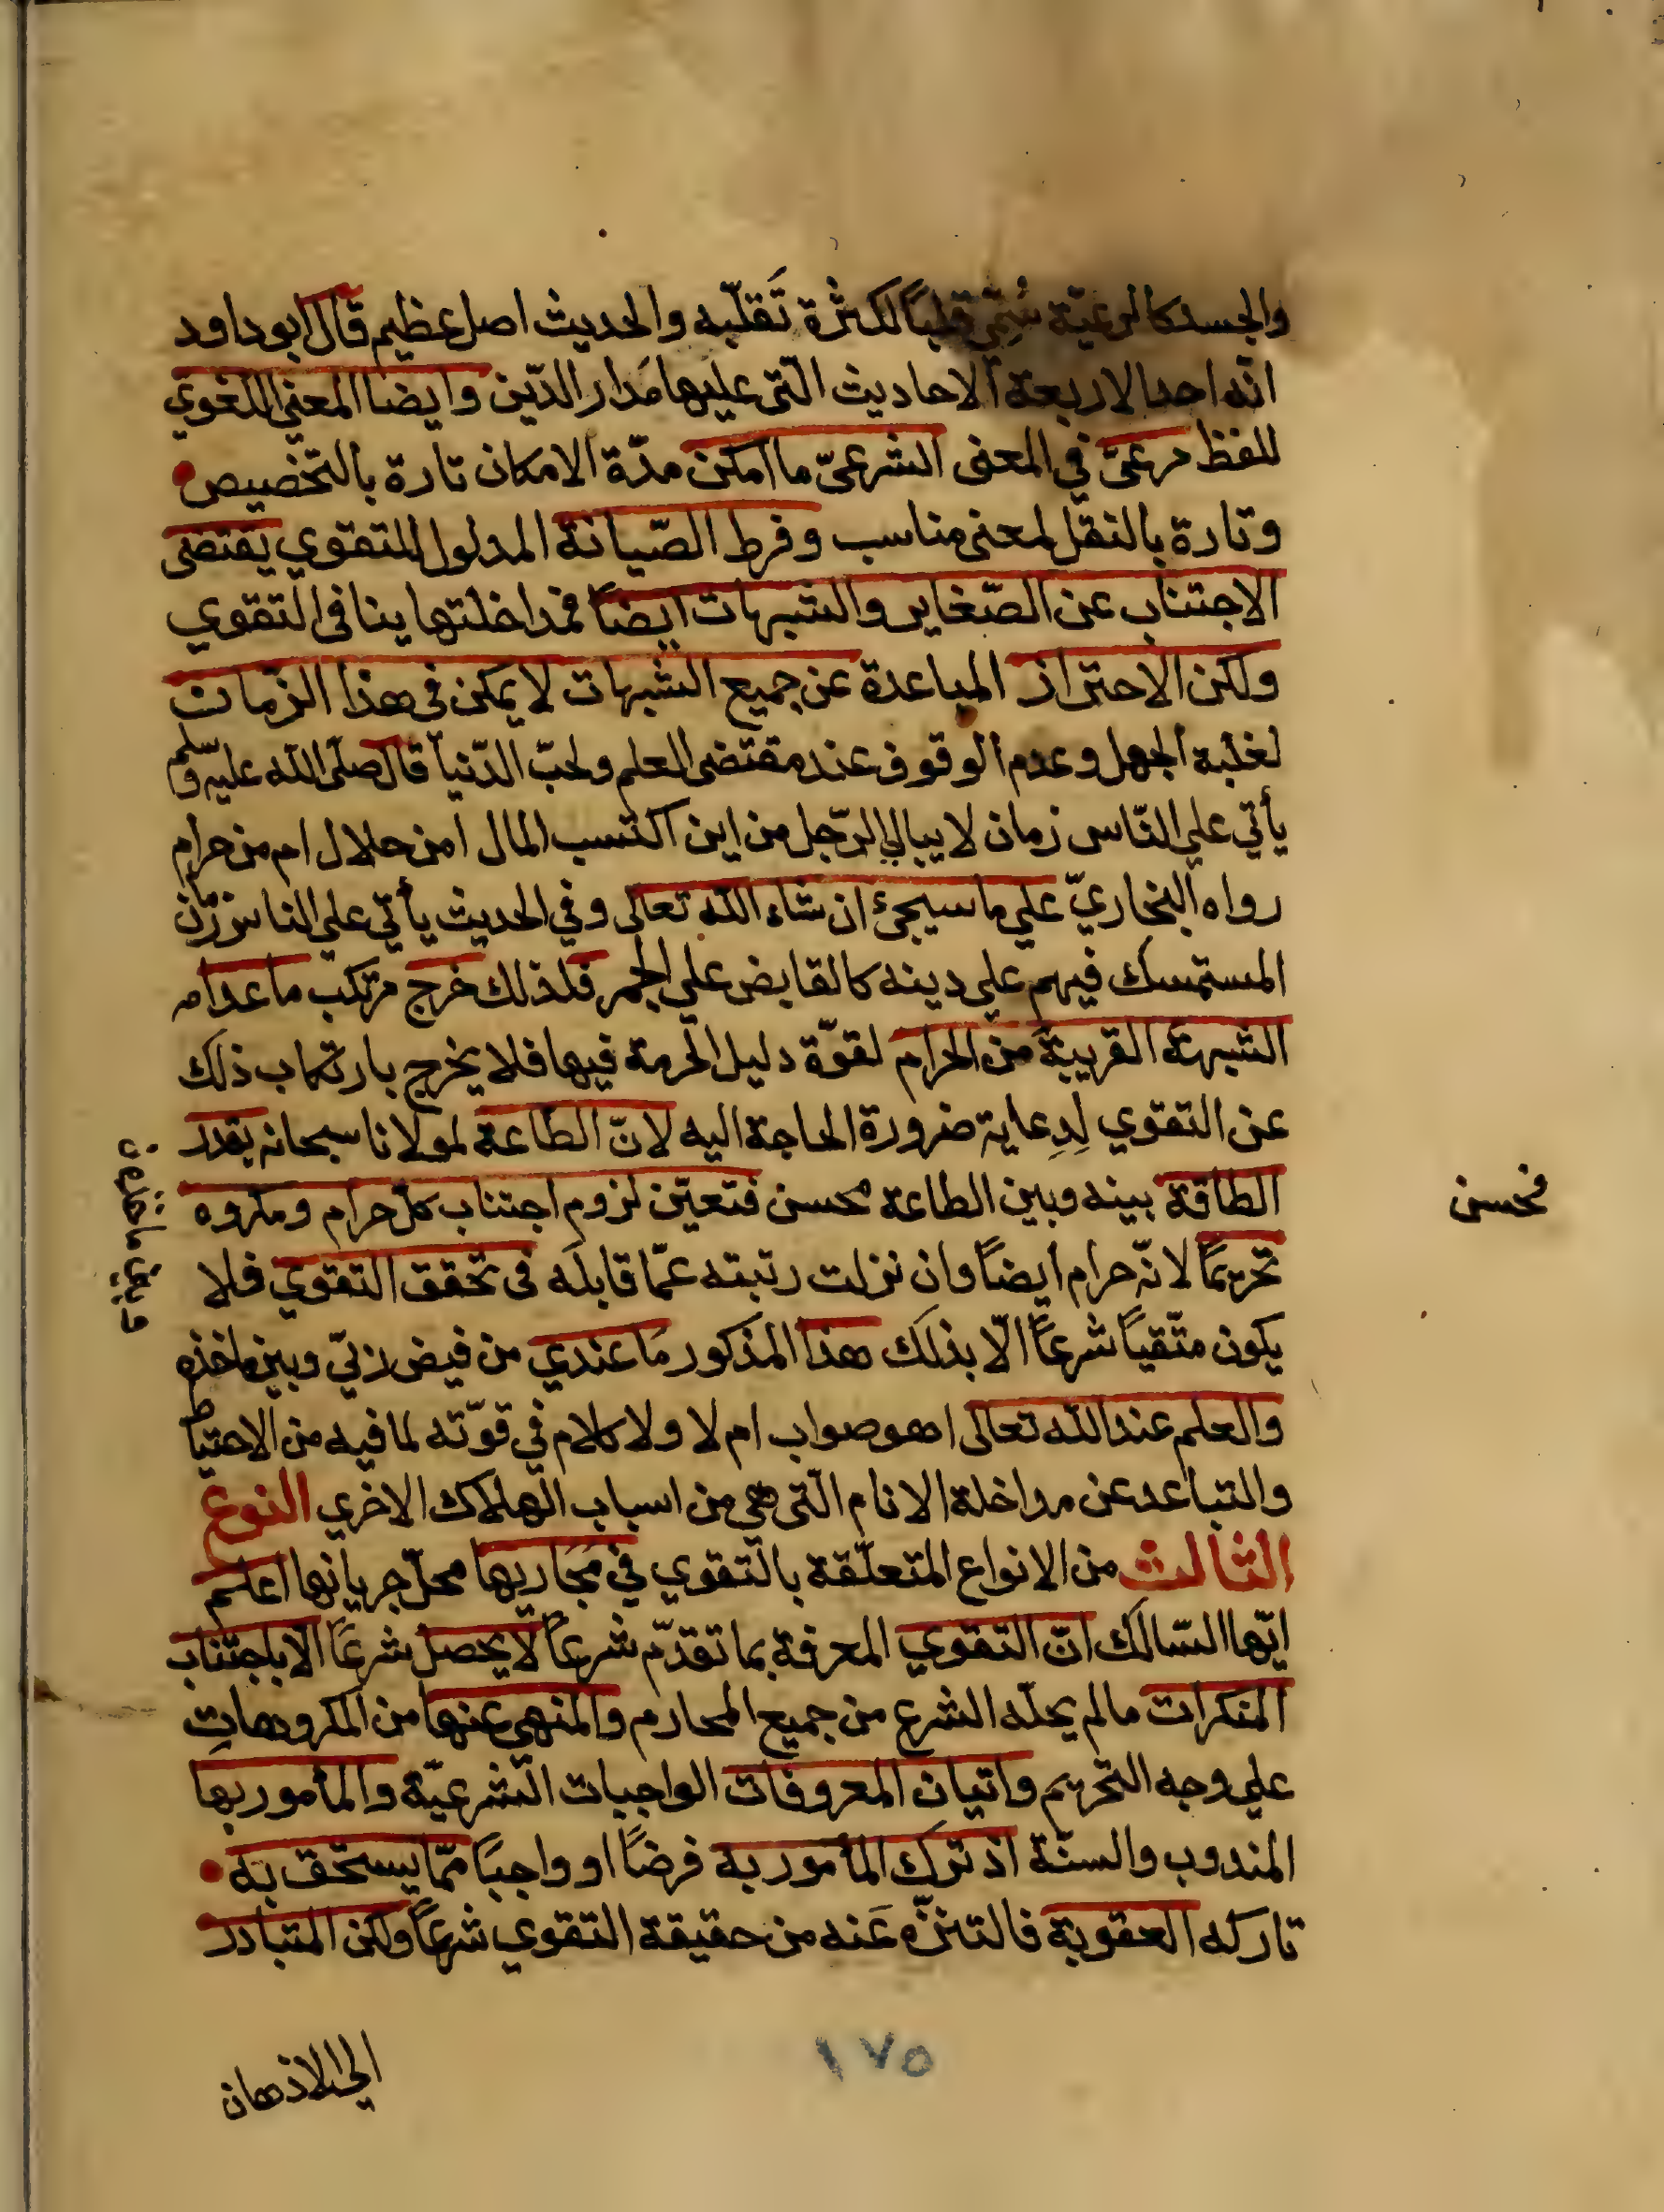 والجسد كالرعيّة سُمّي قلبًا لكثرة تَقلّبه والحديث اصل عظيم قال ابو داود
انّه احد الاربعة الاحاديث الّتى عليها مَدار الدّين وايضا المعني اللغوي
للفظ مرعىّ في المعنى الشرعىّ ما امكن مدّة الامكان تارة بالتخصيص
وتارة بالنقل لمعنى مناسب وفرط الصّيانة المدلول للتقوي يقتضى
الاجتناب عن الصّغاير والشبهات ايضاً فمداخلتها ينافى التقوي
ولكن الاحتراز المباعدة عن جميع الشبهات لا يمكن فى هذا الزّمان
لغلبة الجهل وعدم الوقوف عند مقتضى العلم ولحبّ الدّنيا قال صلّى اللّه عليه وسلّم
يأتي علي النّاس زمان لا يبالي الرّجل من اين اكتسب المال امن حلال ام من حرام
رواه البخاريّ علي ما سيجئ ان شاء اللّه تعالى وفي الحديث يأتي علي الناس زمان
المستمسك فيهم علي دينه كالقابض علي الجمر فلذلك خرج مرتكب ما عدا مه
الشبهة القريبة من الحرام لقوّة دليل الحرمة فيها فلا يخرج بارتكاب ذلك
عن التقوي لِرِعاية ضرورة الحاجة اليه لانّ الطاعة لمولانا سبحانه بقدر
الطاقة بينه وبين الطاعة محسن فتعيّن لزوم اجتناب كلّ حرام ومكروه
فحسن
تحريمًا لانّه حرام ايضاً وان نزلت رتبته عمّا قابله فى تحقق التقوي فلا
يكون متّقياً شرعاً الّا بذلك هذا المذكور مَا عندي من فيض ربّي وبين ماخذه
والعلم عند اللّه تعالى اهو صواب ام لا ولا كلام في قوّته لما فيه من الاحتياط
والتباعد عن مداخلة الانام الّتى هى من اسباب الهلاك الاخري النوع
الثالث من الانواع المتعلّقة بالتقوي في مَجَاريها محلّ جريانها اعلم
ايّها السّالك انّ التقوي المعرفة بما تقدّم شرعاً لا يحصل شرعاً الّا باجتناب
المنكرات ما لم يحلّه الشرع من جميع المحارم والمنهى عنها من المكروهاتِ
علي وجه التحريم واتيان المعروفات الواجبات الشرعيّة والمأمور بها
المندوب والسنّة اذ ترك المأمور به فرضاً او واجبًا ممّا يستحق به
تاركه العقوبة فالتنزّه عَنه من حقيقة التقوي شرعاً ولكن المتبادر
الي الاذهان
١٧٥